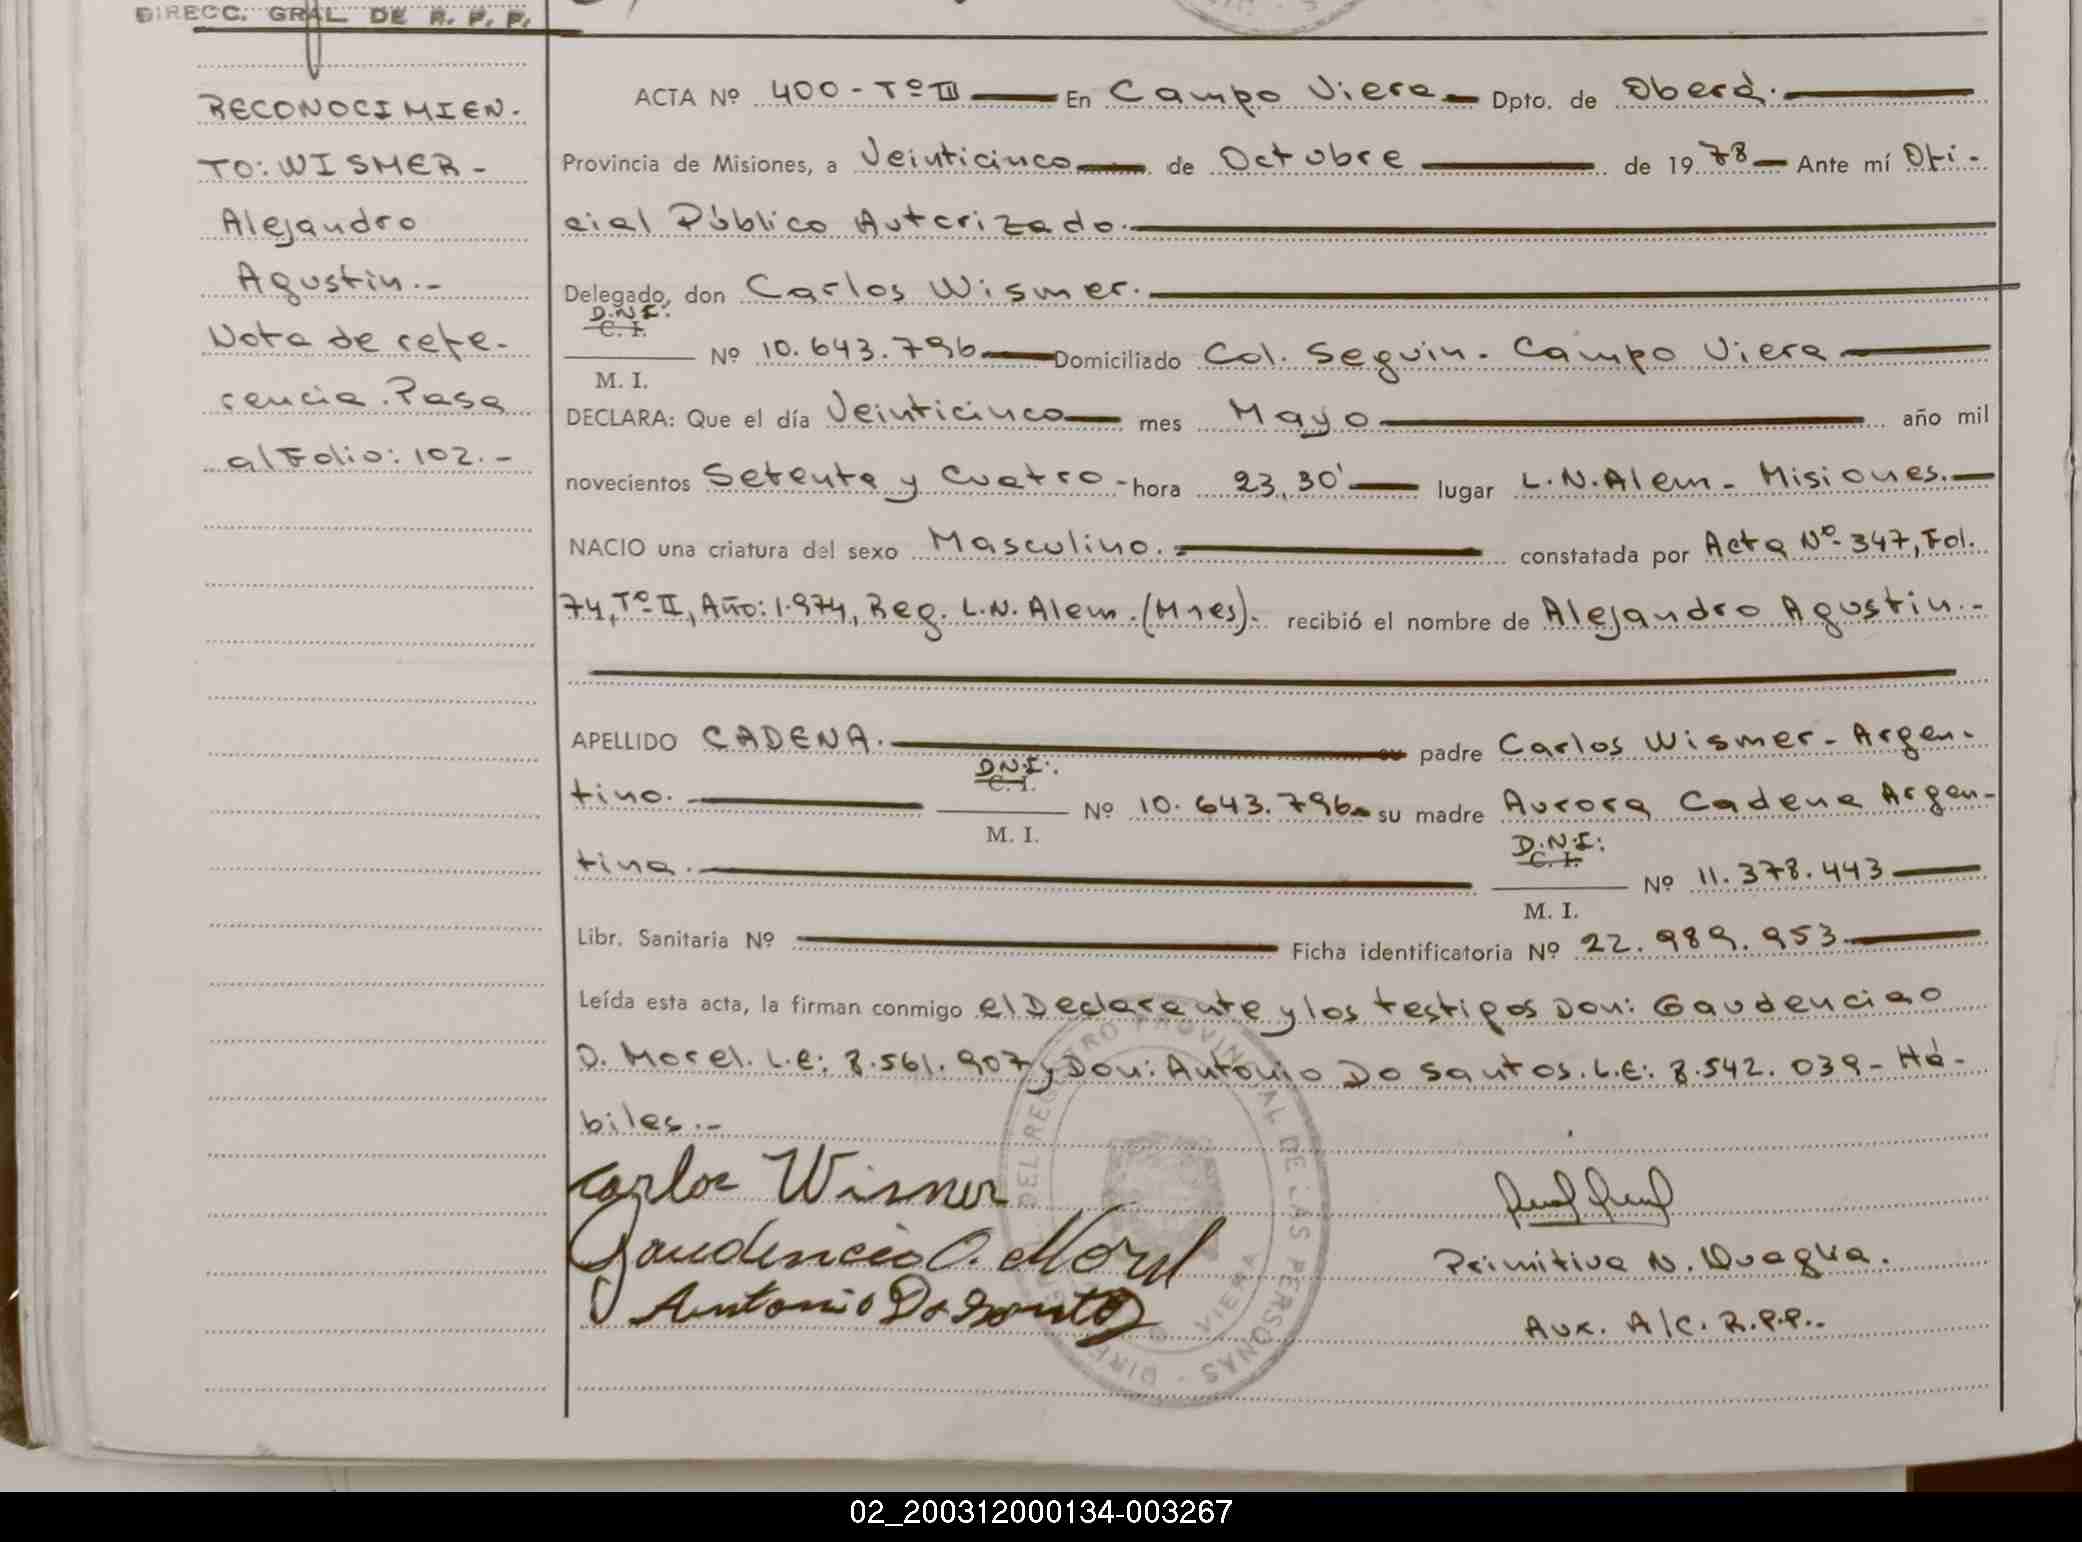 DIRECC. GRAL DE R. P. P.
RECONOCIMIEN-
TO: WISMER -
Alejandro
Agustin.-
Nota de refe-
rencia. Pasa
al Folio: 102.-
ACTA Nº 400 - Tº III En Campo Viera Dpto. de Oberá.
Provincia de Misiones, a Veinticinco de Octubre de 1978 Ante mí Ofi-
cial Público Autorizado.
Delegado, don Carlos Wismer.
D.N.I:
C. I.
M. I. Nº 10.643.796 Domiciliado Col. Seguin - Campo Viera
DECLARA: Que el día Veinticinco mes Mayo año mil
novecientos Setenta y Cuatro - hora 23,30' lugar L.N.Alem - Misiones.
NACIO una criatura del sexo Masculino. constatada por Acta Nº 347, Fol.
74, Tº II, Año: 1.974, Reg. L.N. Alem. (Mnes). recibió el nombre de Alejandro Agustin.-
APELLIDO CADENA. su padre Carlos Wismer - Argen-
tino. D.N.I:. C. I. M. I. Nº 10.643.796 su madre Aurora Cadena Argen-
tina. D.N.I: C. I. M. I. Nº 11.378.443
Libr. Sanitaria Nº Ficha identificatoria Nº 22.989.953
Leída esta acta, la firman conmigo el Declarante y los testigos Don: Gaudenciao
O. Morel. L.E: 8.561.907 y Don: Antonio Do Santos. L.E: 8.542.039 - Há-
biles.-
Carlos Wismer
Gaudencio O. Morel
Antonio Do Santos
Primitiva N. Quaglia.
Aux. A/C. R.P.P..
DEL REGISTRO PROVINCIAL DE LAS PERSONAS
VIERA
02_200312000134-003267